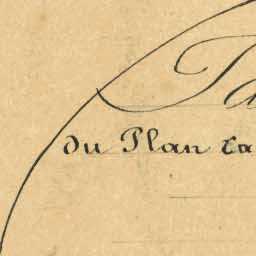 Ta
Du Plan ca